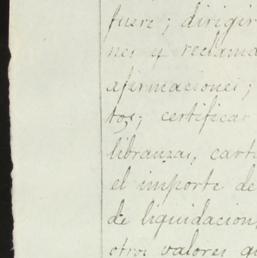 fuere; dirigir
nes y reclama
afirmaciones;
tos; certificar
libranzas, carta
el importe de
de liquidacion,
otros valores qu